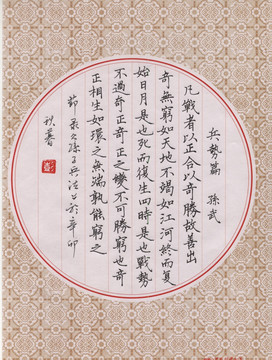 兵勢篇　孫武
凡戰者以正合以奇勝故善出
奇無窮如天地不竭如江河終而復
始日月是也死而復生四時是也戰勢
不過奇正奇正之變不可勝窮也奇
正相生如環之無端孰能窮之
節录之孫子兵法於辛卯
秋暮